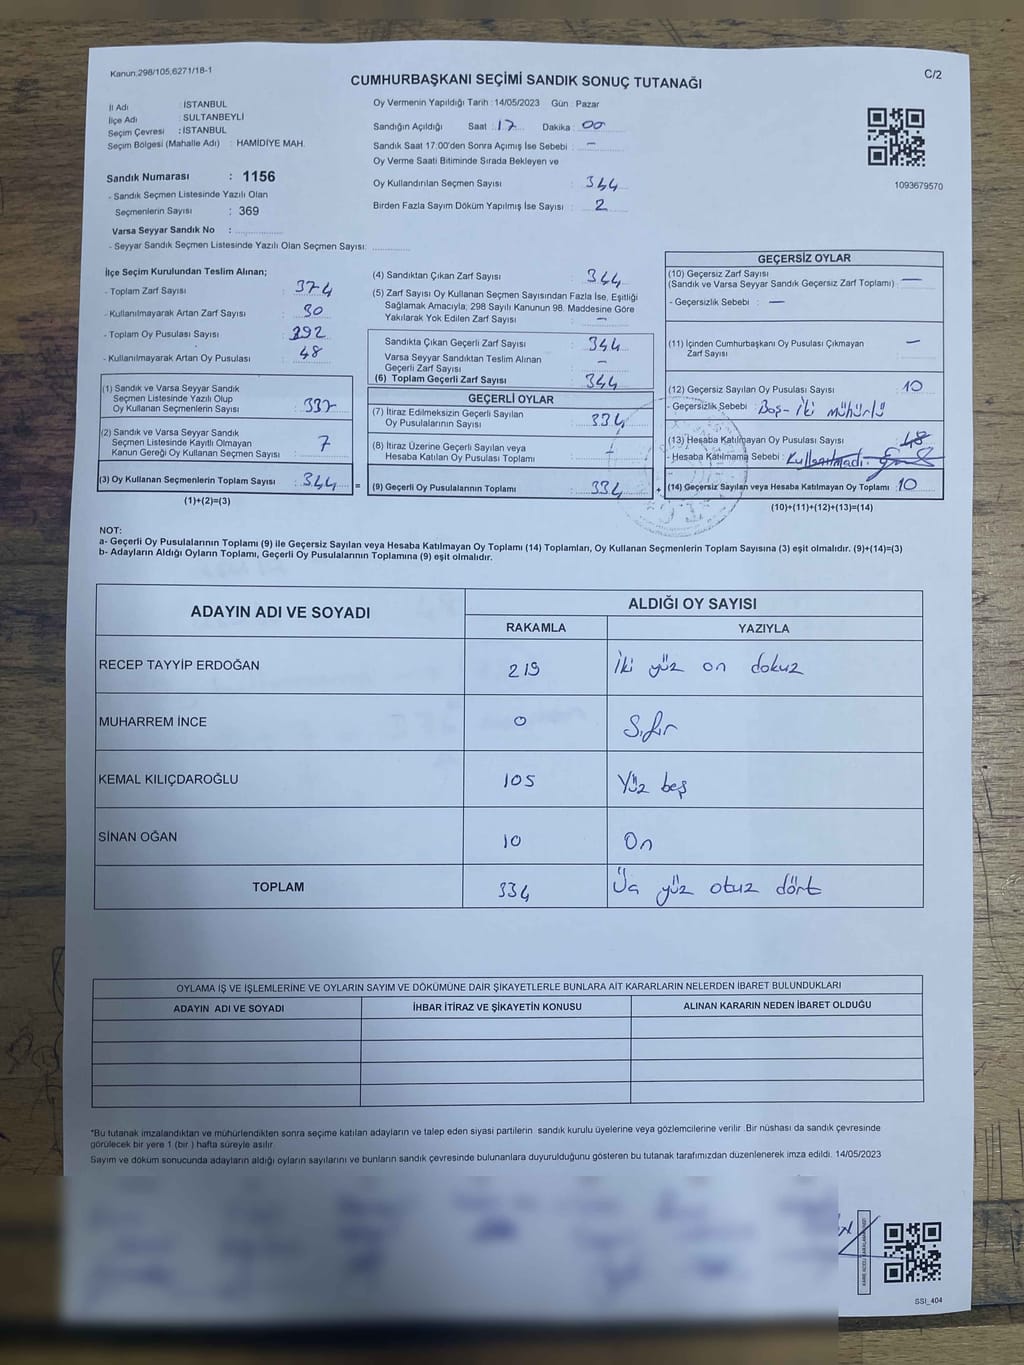 Kanun;298/105;6271/18-1
C/2
CUMHURBAŞKANI SEÇİMİ SANDIK SONUÇ TUTANAĞI
İl Adı : İSTANBUL
İlçe Adı : SULTANBEYLİ
Seçim Çevresi : İSTANBUL
Seçim Bölgesi (Mahalle Adı) : HAMİDİYE MAH.
Oy Vermenin Yapıldığı Tarih : 14/05/2023 Gün : Pazar
Sandığın Açıldığı Saat : 17 Dakika : 00
Sandık Saat 17:00'den Sonra Açımış İse Sebebi : -
Oy Verme Saati Bitiminde Sırada Bekleyen ve
Oy Kullandırılan Seçmen Sayısı : 344
Birden Fazla Sayım Döküm Yapılmış İse Sayısı : 2
1093679570
Sandık Numarası : 1156
- Sandık Seçmen Listesinde Yazılı Olan
Seçmenlerin Sayısı : 369
Varsa Seyyar Sandık No :
- Seyyar Sandık Seçmen Listesinde Yazılı Olan Seçmen Sayısı:
İlçe Seçim Kurulundan Teslim Alınan;
- Toplam Zarf Sayısı : 374
- Kullanılmayarak Artan Zarf Sayısı : 30
- Toplam Oy Pusulası Sayısı : 392
- Kullanılmayarak Artan Oy Pusulası : 48
(1) Sandık ve Varsa Seyyar Sandık
Seçmen Listesinde Yazılı Olup
Oy Kullanan Seçmenlerin Sayısı : 337
(2) Sandık ve Varsa Seyyar Sandık
Seçmen Listesinde Kayıtlı Olmayan
Kanun Gereği Oy Kullanan Seçmen Sayısı : 7
(3) Oy Kullanan Seçmenlerin Toplam Sayısı : 344 =
(1)+(2)=(3)
(4) Sandıktan Çıkan Zarf Sayısı : 344
(5) Zarf Sayısı Oy Kullanan Seçmen Sayısından Fazla İse, Eşitliği
Sağlamak Amacıyla; 298 Sayılı Kanunun 98. Maddesine Göre
Yakılarak Yok Edilen Zarf Sayısı : -
Sandıkta Çıkan Geçerli Zarf Sayısı : 344
Varsa Seyyar Sandıktan Teslim Alınan
Geçerli Zarf Sayısı : -
(6) Toplam Geçerli Zarf Sayısı : 344
GEÇERLİ OYLAR
(7) İtiraz Edilmeksizin Geçerli Sayılan
Oy Pusulalarının Sayısı : 334
(8) İtiraz Üzerine Geçerli Sayılan veya
Hesaba Katılan Oy Pusulası Toplamı : -
(9) Geçerli Oy Pusulalarının Toplamı : 334 +
GEÇERSİZ OYLAR
(10) Geçersiz Zarf Sayısı
(Sandık ve Varsa Seyyar Sandık Geçersiz Zarf Toplamı) : -
- Geçersizlik Sebebi : -
(11) İçinden Cumhurbaşkanı Oy Pusulası Çıkmayan
Zarf Sayısı : -
(12) Geçersiz Sayılan Oy Pusulası Sayısı : 10
- Geçersizlik Sebebi : Boş - iki mühürlü
(13) Hesaba Katılmayan Oy Pusulası Sayısı : 48
- Hesaba Katılmama Sebebi : Kullanılmadı.
(14) Geçersiz Sayılan veya Hesaba Katılmayan Oy Toplamı : 10
(10)+(11)+(12)+(13)=(14)
NOT:
a- Geçerli Oy Pusulalarının Toplamı (9) ile Geçersiz Sayılan veya Hesaba Katılmayan Oy Toplamı (14) Toplamları, Oy Kullanan Seçmenlerin Toplam Sayısına (3) eşit olmalıdır. (9)+(14)=(3)
b- Adayların Aldığı Oyların Toplamı, Geçerli Oy Pusulalarının Toplamına (9) eşit olmalıdır.
ADAYIN ADI VE SOYADI
ALDIĞI OY SAYISI
RAKAMLA YAZIYLA
RECEP TAYYİP ERDOĞAN 219 İki yüz on dokuz
MUHARREM İNCE 0 Sıfır
KEMAL KILIÇDAROĞLU 105 Yüz beş
SİNAN OĞAN 10 On
TOPLAM 334 Üç yüz otuz dört
OYLAMA İŞ VE İŞLEMLERİNE VE OYLARIN SAYIM VE DÖKÜMÜNE DAİR ŞİKAYETLERLE BUNLARA AİT KARARLARIN NELERDEN İBARET BULUNDUKLARI
ADAYIN ADI VE SOYADI İHBAR İTİRAZ VE ŞİKAYETİN KONUSU ALINAN KARARIN NEDEN İBARET OLDUĞU
*Bu tutanak imzalandıktan ve mühürlendikten sonra seçime katılan adayların ve talep eden siyasi partilerin sandık kurulu üyelerine veya gözlemcilerine verilir .Bir nüshası da sandık çevresinde
görülecek bir yere 1 (bir ) hafta süreyle asılır.
Sayım ve döküm sonucunda adayların aldığı oyların sayılarını ve bunların sandık çevresinde bulunanlara duyurulduğunu gösteren bu tutanak tarafımızdan düzenlenerek imza edildi. 14/05/2023
KARE KODU KARALAMAYINIZ!
SSİ_404